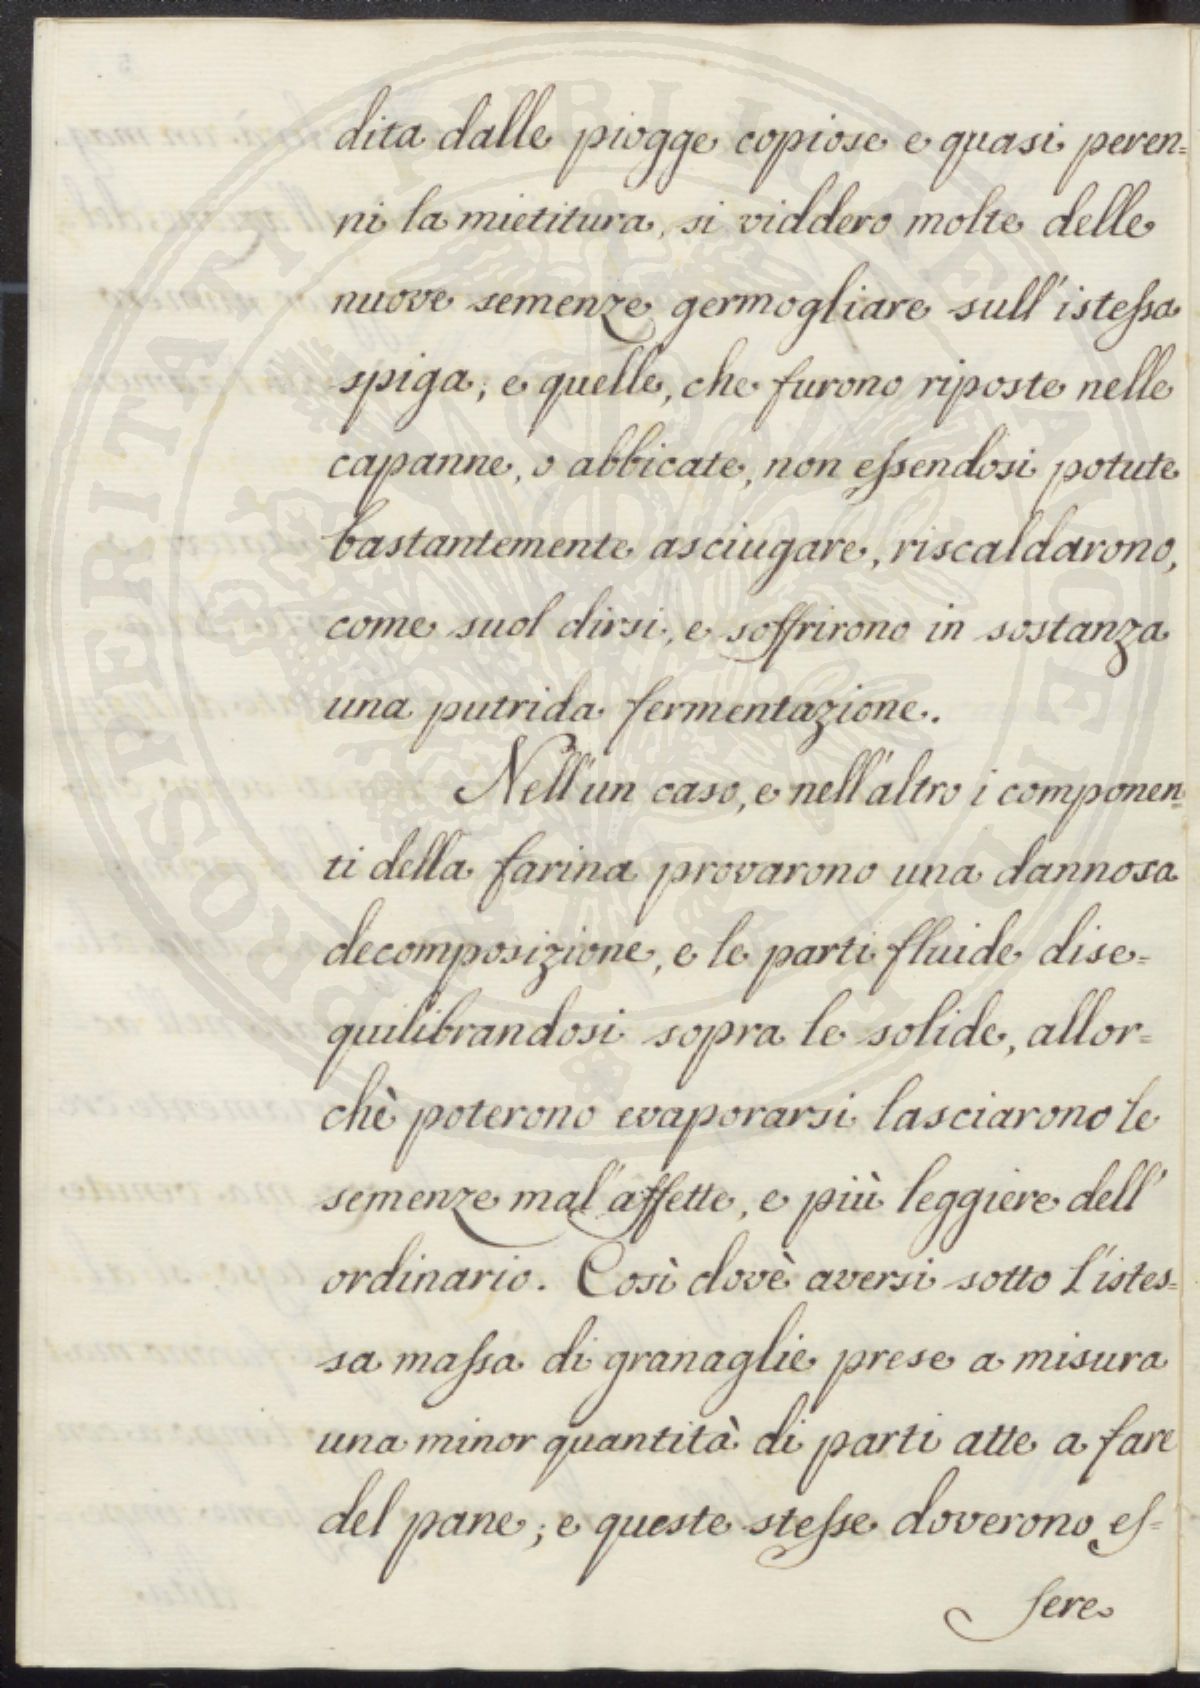 dita dalle piogge copiose e quasi peren=
ni la mietitura, si viddero molte delle
nuove semenze germogliare sull'isteſsa
spiga; e quelle, che furono riposte nelle
capanne, o abbicate, non eſsendosi potute
bastantemente asciugare, riscaldarono,
come suol dirsi, e soffrirono in sostanza
una putrida fermentazione.
Nell'un caso, e nell'altro i componen=
ti della farina provarono una dannosa
decomposizione, e le parti fluide dise=
quilibrandosi sopra le solide, allor=
chè poterono evaporarsi lasciarono le
semenze mal'affette, e più leggiere dell'
ordinario. Così dovè aversi sotto l'istes=
sa maſsa di granaglie prese a misura
una minor quantità di parti atte a fare
del pane; e queste steſse doverono eſ=
sere
PROSPERITATI PUBLICAE AUGENDAE